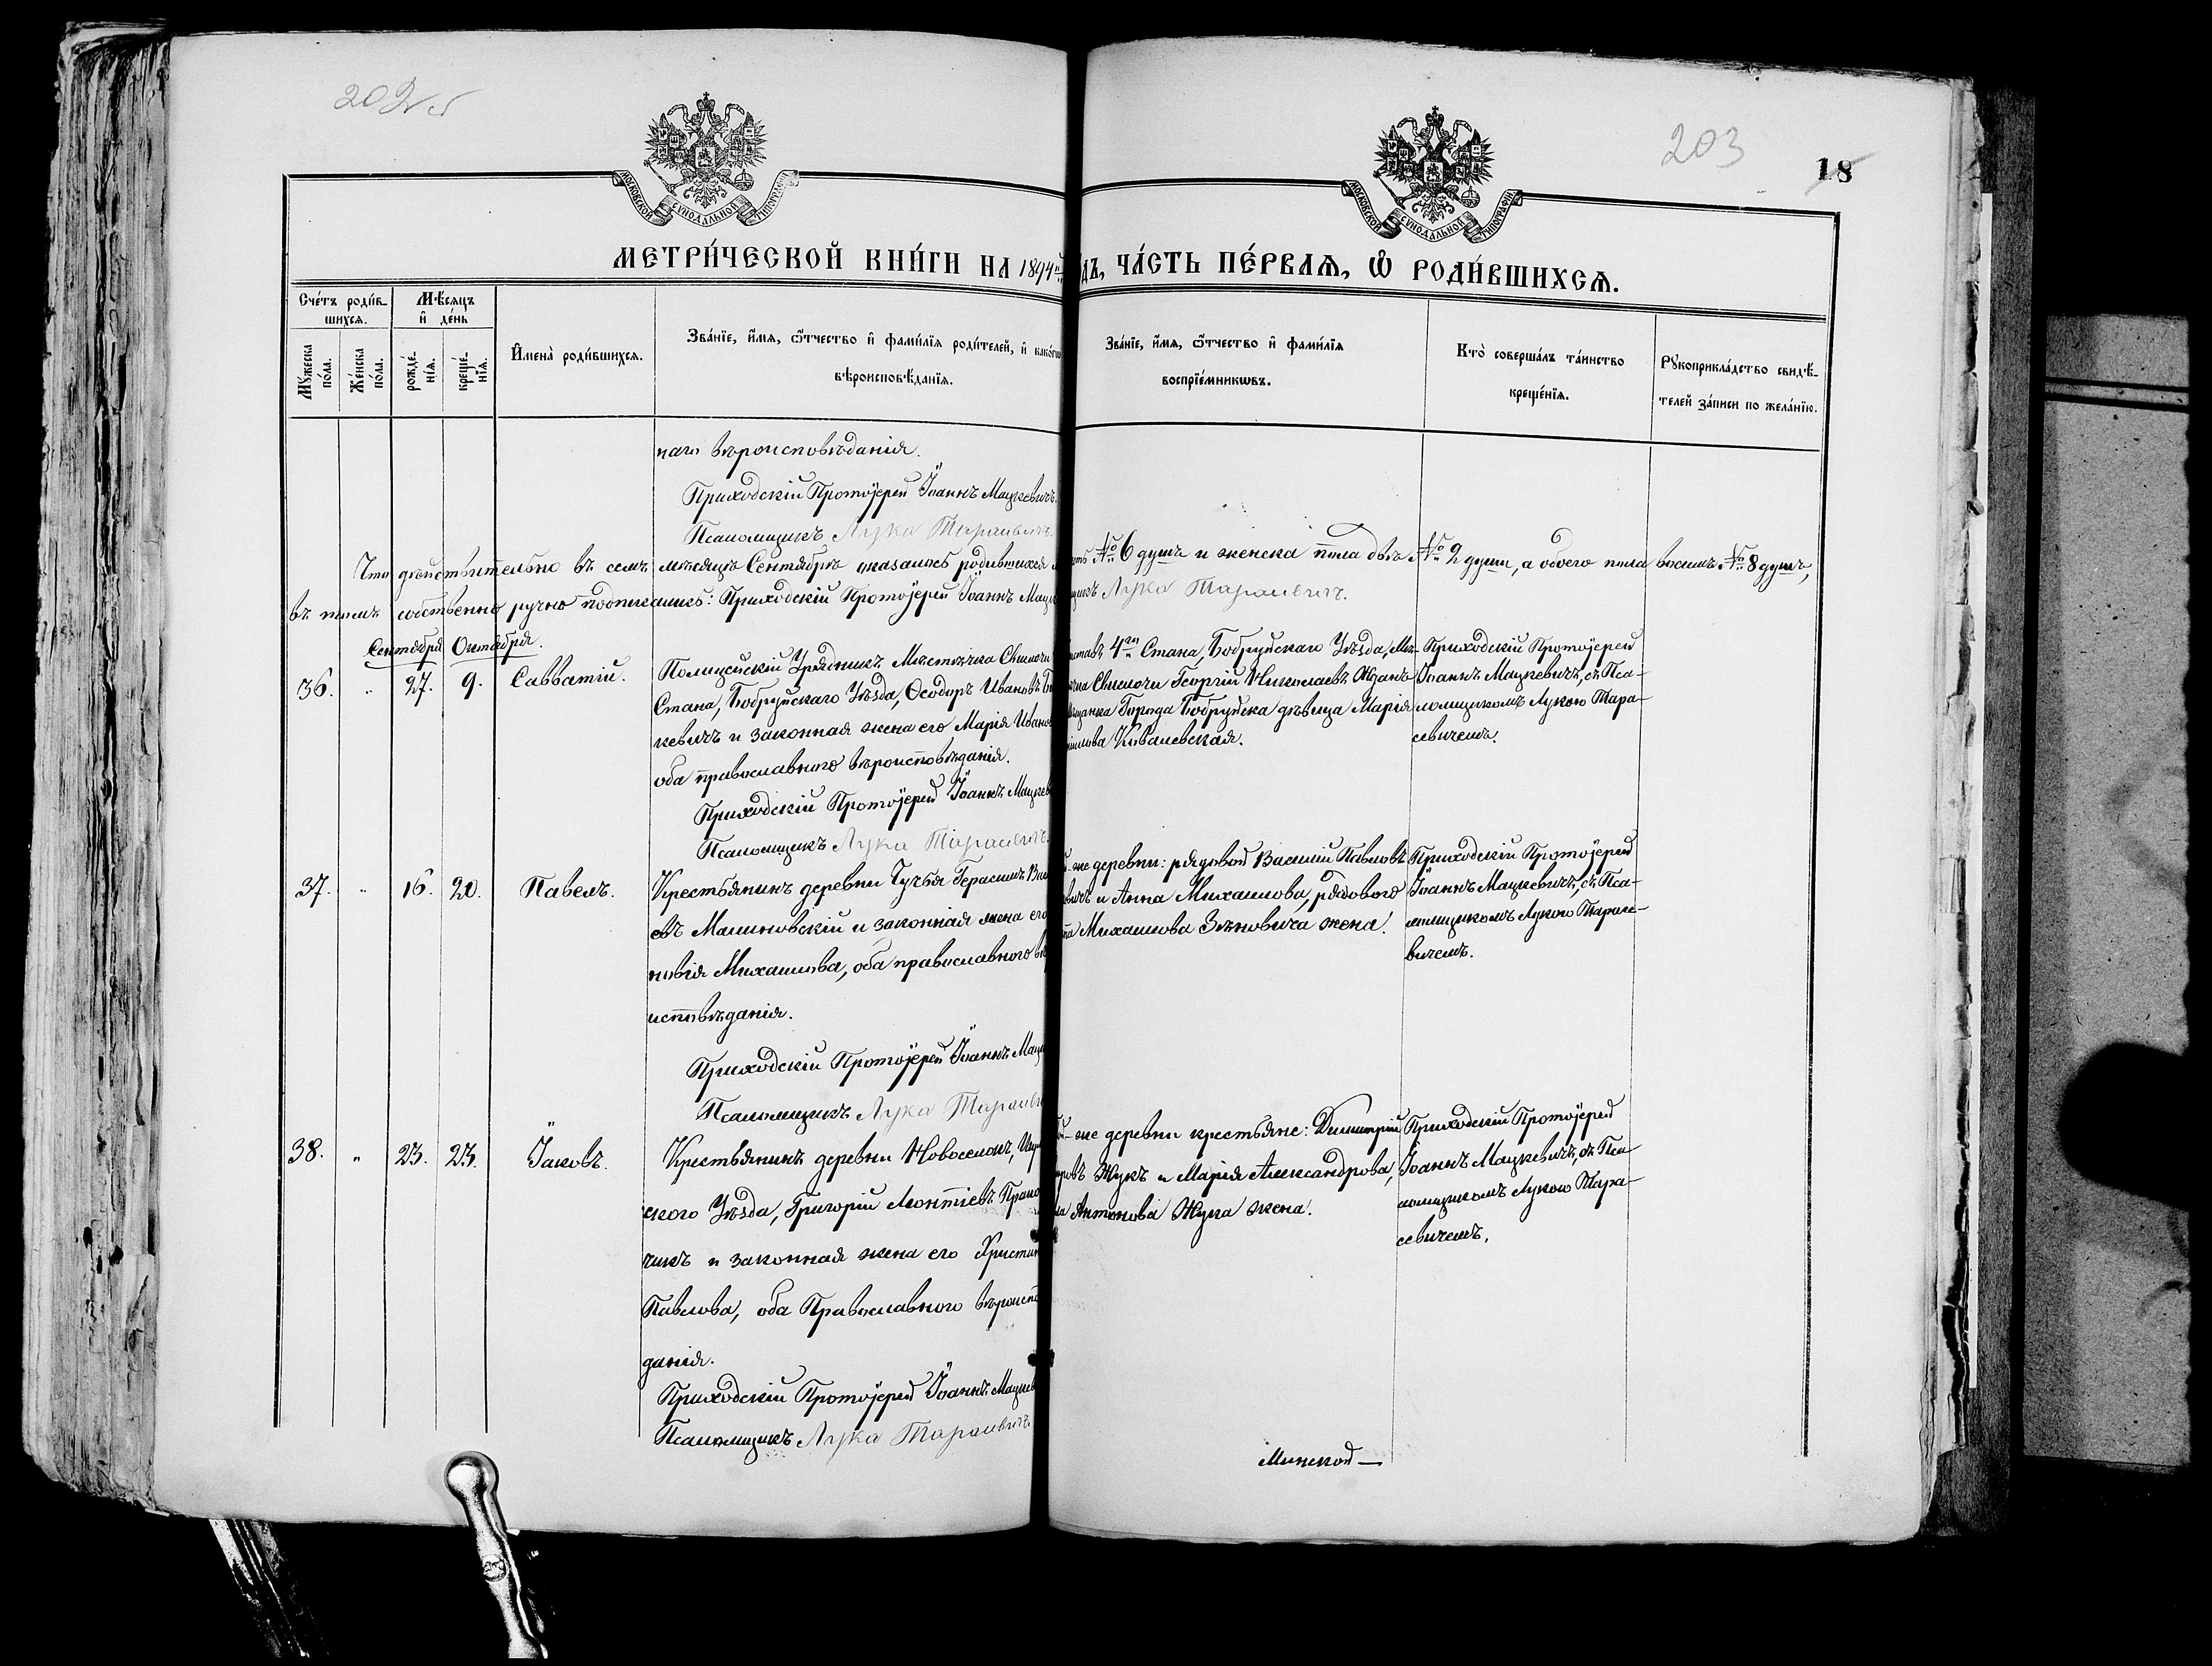 202об
203
18
МОСКОВСКОЙ СУНОДАЛЬНОЙ ТИПОГРАФІИ
МОСКОВСКОЙ СУНОДАЛЬНОЙ ТИПОГРАФІИ
МЕТРИ́ЧЕСКОЙ КНИ́ГИ НА 1894й
ДЪ, ЧА́СТЬ ПЕ́РВАѦ, Ѡ҆ РОДИ́ВШИХСѦ.
Сче́тъ роди́в-
шихсѧ.
Мѣ́сяцъ
и҆ де́нь
Мꙋ́жеска по́ла.
Же́нска по́ла.
рожде́-
нїѧ.
креще́-
нїѧ.
И҆мена̀ роди́вшихсѧ.
Зва́нїе, и҆́мѧ, ѻ҆́тчество и҆ фами́лїѧ роди́телей, и҆ како́гѡ
вѣроисповѣ́данїѧ.
Зва́нїе, и҆́мѧ, ѻ҆́тчество и҆ фами́лїѧ
воспрїе́мникѡвъ.
Кто̀ соверша́лъ та́инство
креще́нїѧ.
Рꙋкоприкла́дство свидѣ́-
телей за́писи по жела́нїю.
наго вѣроисповѣданія.
Приходскій Протоіерей Іоаннъ Мацкевичъ.
Псаломщикъ Лука Тарасевичъ.
Что дѣйствительно въ семъ мѣсяцѣ Сентябрѣ оказалось родившихся
№ 6 душъ и женска пола двѣ № 2 души, а обоего пола восемь № 8 душъ,
въ томъ собственно ручно подписались: Приходскій Протоіерей Іоаннъ Мац
Лука Тарасевичъ.
Сентября Октября.
36. " 27. 9. Савватій.
Полицейскій Урядникъ Мѣстечка Свислочи
Стана, Бобруйскаго Уѣзда, Ѳеодоръ Ивановъ
кевичъ и законная жена его Марія Иванов
оба православного вѣроисповѣданія.
Приходскій Протоіерей Іоаннъ Мацкев
Псаломщикъ Лука Тарасевичъ.
4го Стана, Бобруйскаго Уѣзда, Мѣ-
Свислочи Георгій Николаевъ Жданъ
Города Бобруйска дѣвица Марія
Ковалевская.
Приходскій Протоіерей
Іоаннъ Мацкевичъ, съ Пса-
ломщикомъ Лукою Тара-
севичемъ.
37. " 16. 20. Павелъ.
Крестьянинъ деревни Чучья Герасимъ
евъ Малиновскій и законная жена его
новія Михаилова, оба православного вѣ
исповѣданія.
Приходскій Протоіерей Іоаннъ Мац
Псаломщикъ Лука Тарасеви
же деревни: рядовой Василій Павловъ
и Анна Михаилова, рядового
Михаилова Зѣновича жена.
Приходскій Протоіерей
Іоаннъ Мацкевичъ, съ Пса-
ломщикомъ Лукою Тарасе-
вичемъ.
38. " 23. 23. Іаковъ.
Крестьянинъ деревни Новоселокъ, Игум
ского Уѣзда, Григорій Леонтіевъ
чикъ и законная жена его Христин
Павлова, оба Православного вѣроиспо
данія.
Приходскій Протоіерей Іоаннъ Мацкев
Псаломщикъ Лука Тарасевичъ
же деревни крестьяне: Димитрій
Жукъ и Марія Александрова,
Антонова Жука жена.
Приходскій Протоіерей
Іоаннъ Мацкевичъ, съ Пса-
ломщикомъ Лукою Тара-
севичемъ.
Минской —